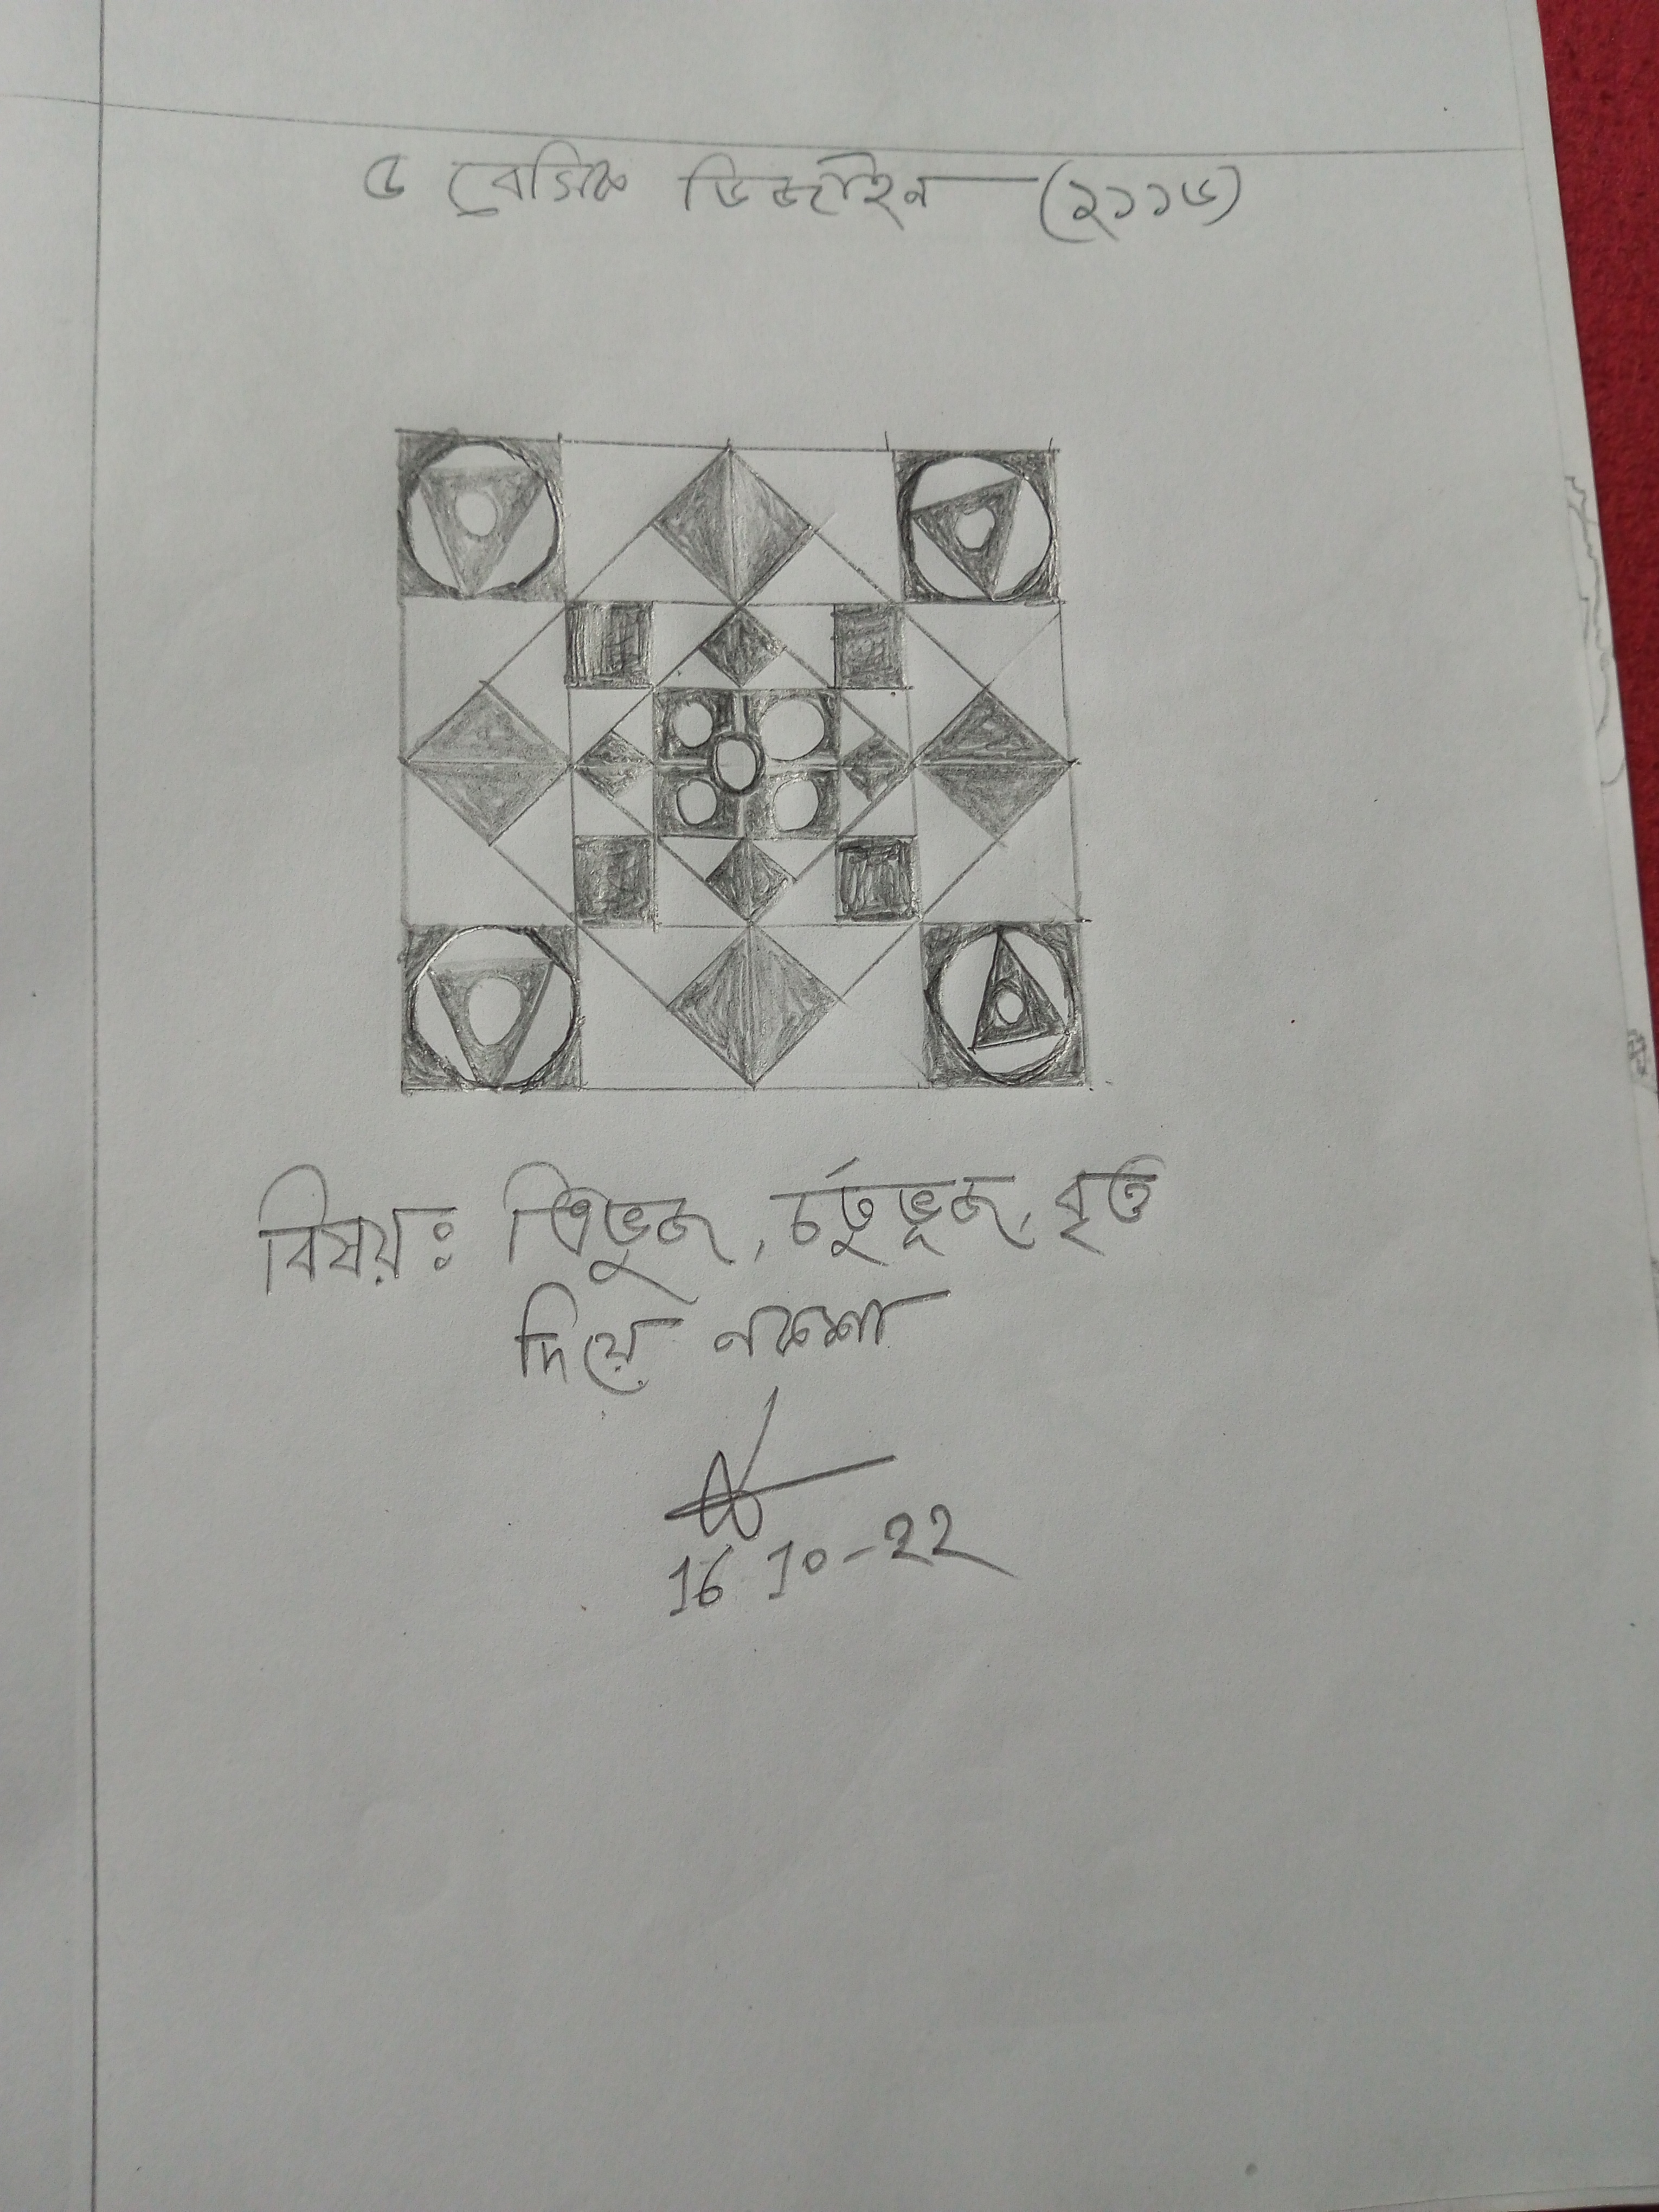 ৫ বেসিক ডিজাইন—(২১১৬)
বিষয়ঃ ত্রিভুজ, চর্তুভূজ, বৃত্ত
দিয়ে নকশা
16 10-22